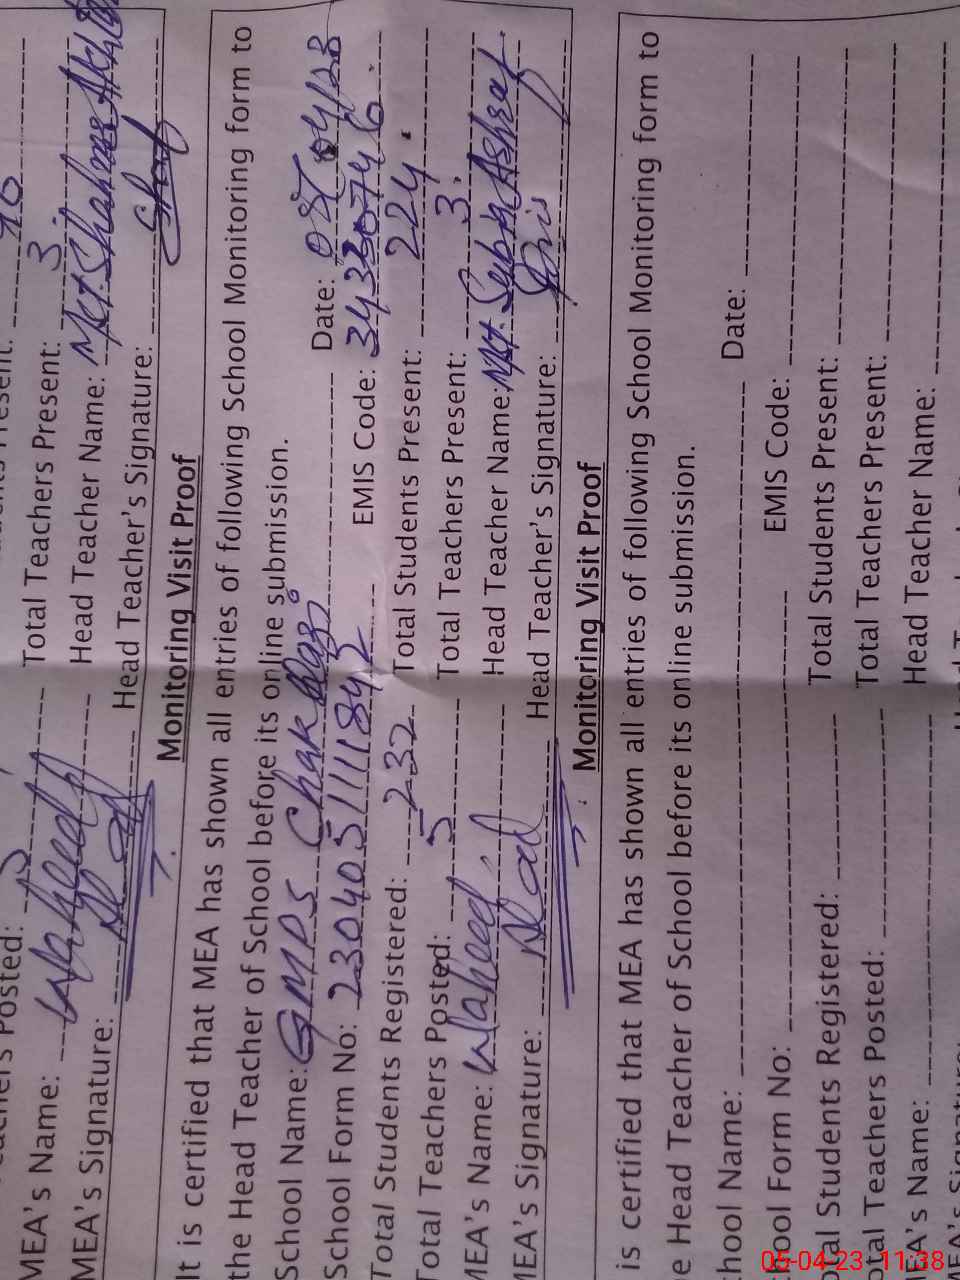 Posted: 5
Total Teachers Present: 3
MEA's Name: Waheed Head Teacher Name: Mst Shahnaz Akhtar
MEA's Signature: Head Teacher's Signature:
Monitoring Visit Proof
It is certified that MEA has shown all entries of following School Monitoring form to
the Head Teacher of School before its online submission.
School Name: GMPS Chak Date: 05/04/23
School Form No: 2304051111842 EMIS Code: 34330746
Total Students Registered: 232 Total Students Present: 224
Total Teachers Posted: 5 Total Teachers Present: 3
MEA's Name: Waheed Head Teacher Name: Mst. Subh Ashraf
MEA's Signature: Head Teacher's Signature:
Monitoring Visit Proof
is certified that MEA has shown all entries of following School Monitoring form to
e Head Teacher of School before its online submission.
hool Name: Date:
hool Form No: EMIS Code:
otal Students Registered: Total Students Present:
otal Teachers Posted: Total Teachers Present:
EA's Name: Head Teacher Name:
05-04-23 11:38